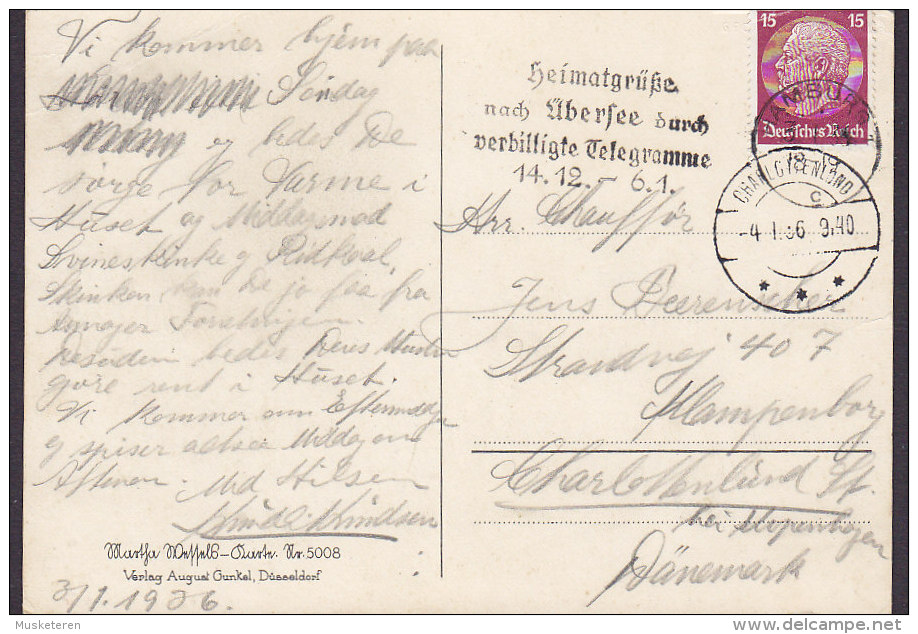 Vi kommer hjem paa
Söndag
og beder De
sörge for Varme i
Huset og Middagsmad
Svineskinke og Rödkaal,
Skinken kan De jo faa fra
Amager Forretningen.
Desuden beder Deres Hustru
gjöre rent i Huset.
Vi kommer om Eftermiddagen
og spiser altsaa Middag om
Aftenen. Med Hilsen
Knud Knudsen
Martha Wessels-Karte. Nr. 5008
Verlag August Gunkel, Düsseldorf
3/1. 1936.
Heimatgrüße
nach Übersee durch
verbilligte Telegramme
14.12. - 6.1.
15 15
Deutsches Reich
HAMBURG
18-19
CHARLOTTENLUND
C
-4.1.36 9.40
* * *
Hrr. Chaufför
Jens
Strandvej 407
Klampenborg
Charlottenlund St.
bei Kopenhagen
Dänemark
Musketeren
delcampe.net